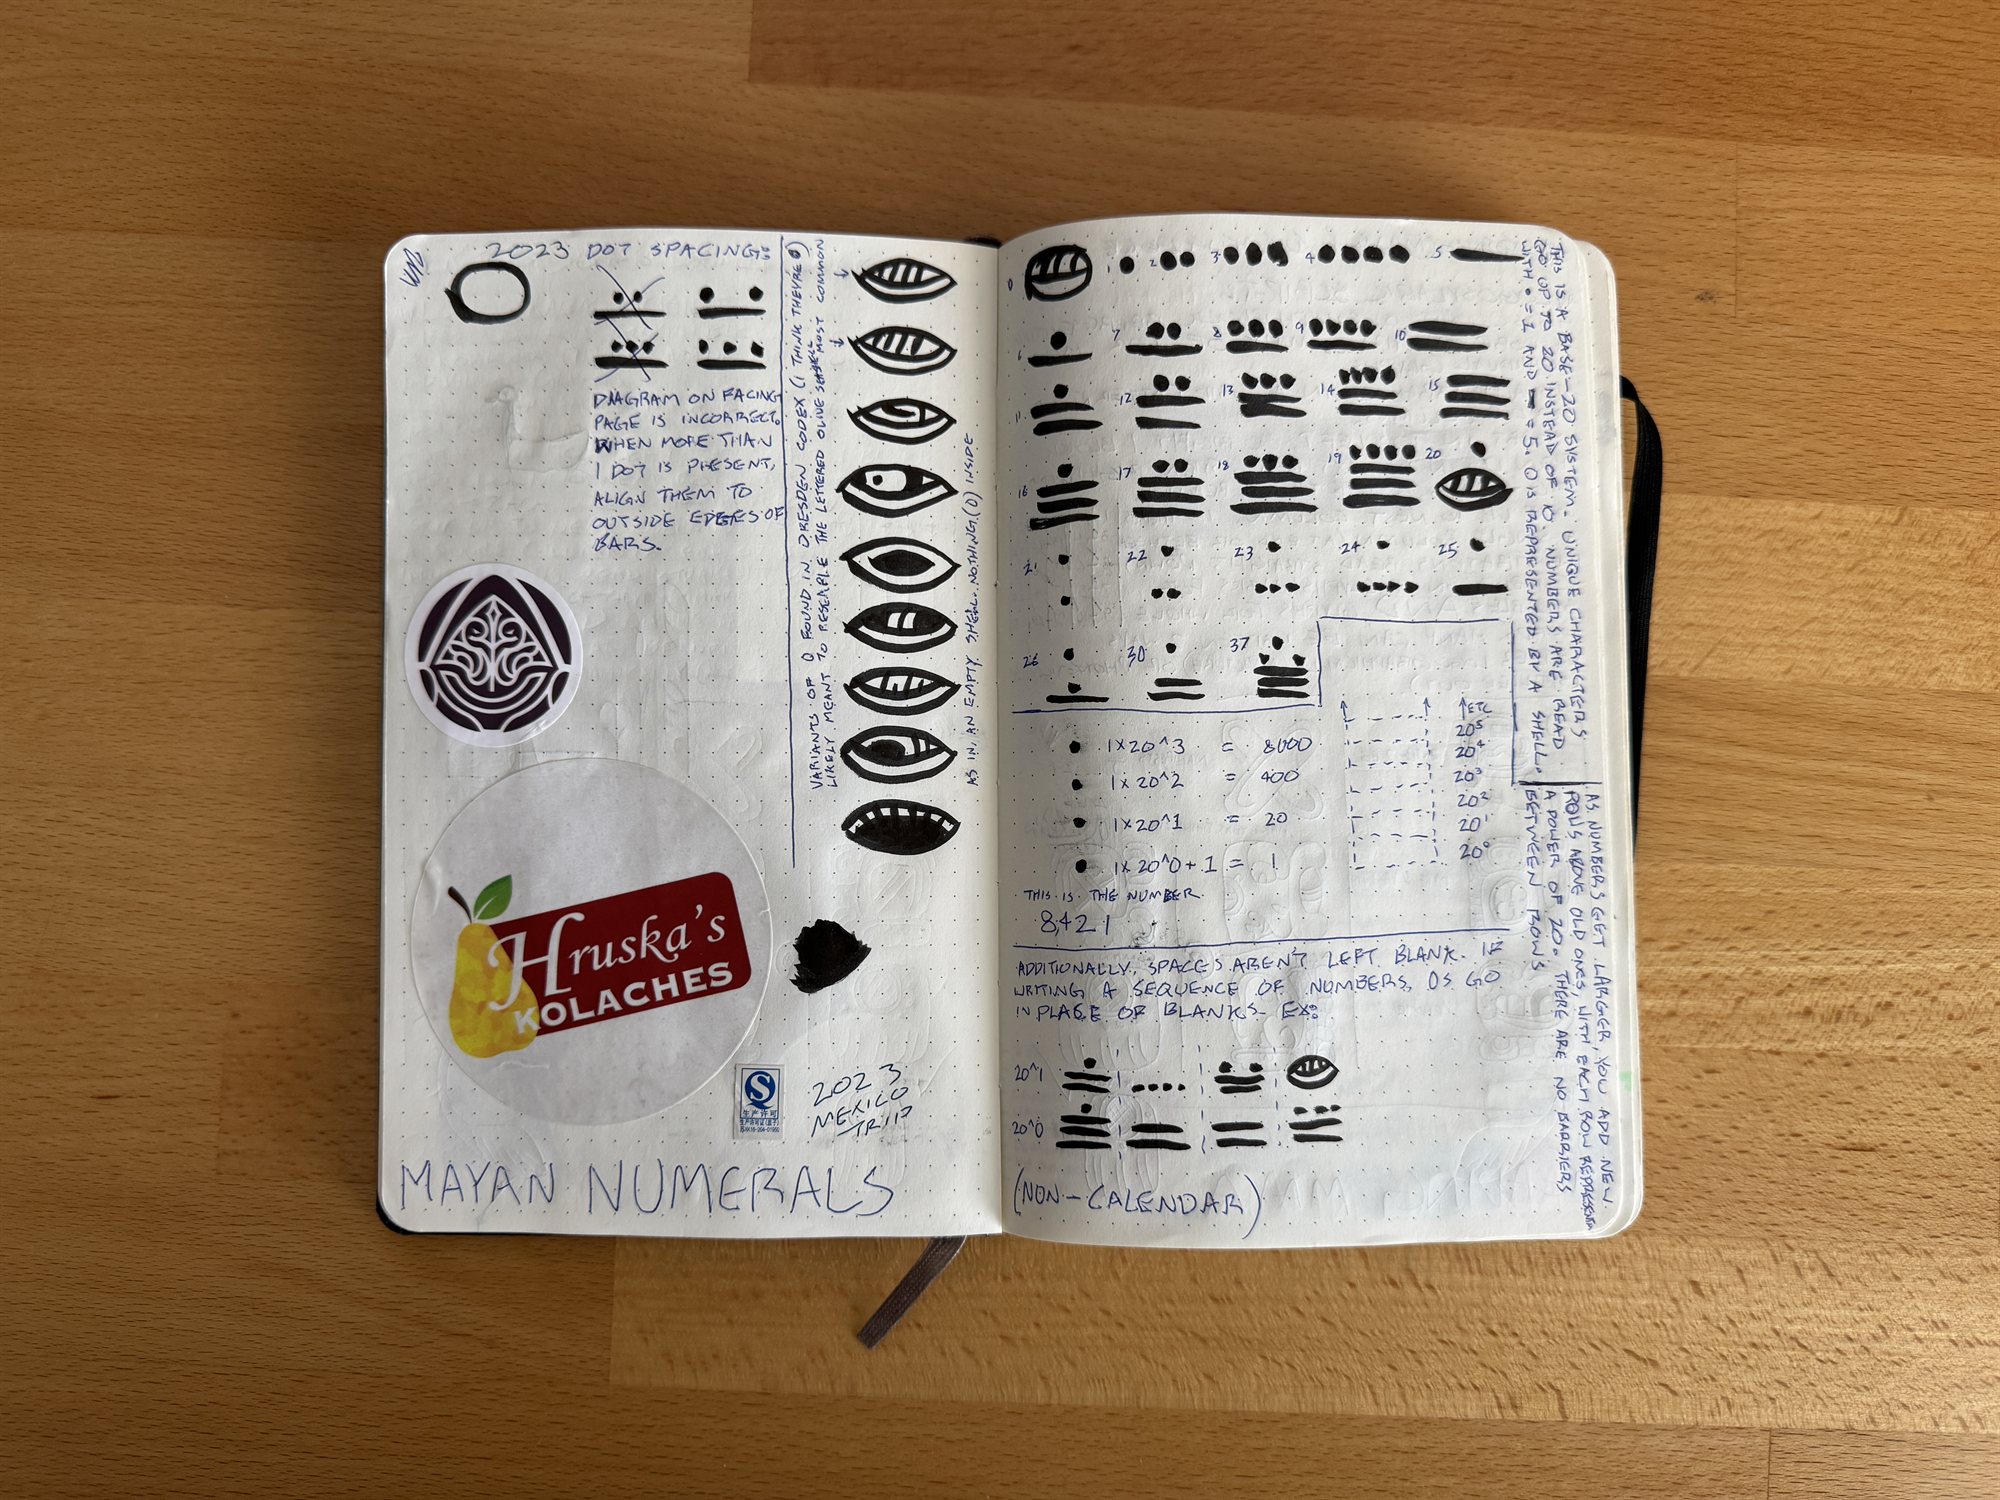 2023 DOT SPACING:
DIAGRAM ON FACING
PAGE IS INCORRECT.
WHEN MORE THAN
1 DOT IS PRESENT,
ALIGN THEM TO
OUTSIDE EDGES OF
BARS.
VARIANTS OF 0 FOUND IN DRESDEN CODEX (I THINK THEY'RE 0)
LIKELY MEANT TO RESEMBLE THE LETTERED OLIVE SHELL
MOST COMMON
AS IN, AN EMPTY SHELL. NOTHING (0) INSIDE
Hruska's
KOLACHES
生产许可
2023
MEXICO
TRIP
MAYAN NUMERALS
0 1 2 3 4 5
6 7 8 9 10
11 12 13 14 15
16 17 18 19 20
21 22 23 24 25
26 30 37
1×20^3 = 8000
1×20^2 = 400
1×20^1 = 20
1×20^0+1 = 1
THIS IS THE NUMBER
8,421
ETC
20⁵
20⁴
20³
20²
20¹
20⁰
ADDITIONALLY, SPACES AREN'T LEFT BLANK. IF
WRITING A SEQUENCE OF NUMBERS, 0S GO
IN PLACE OF BLANKS EX:
20^1
20^0
(NON-CALENDAR)
THIS IS A BASE-20 SYSTEM. UNIQUE CHARACTERS
GO UP TO 20 INSTEAD OF 10. NUMBERS ARE READ
WITH • = 1 AND — = 5. 0 IS REPRESENTED BY A SHELL.
AS NUMBERS GET LARGER, YOU ADD NEW
ROWS ABOVE OLD ONES, WITH EACH ROW
A POWER OF 20. THERE ARE NO BARRIERS
BETWEEN ROWS